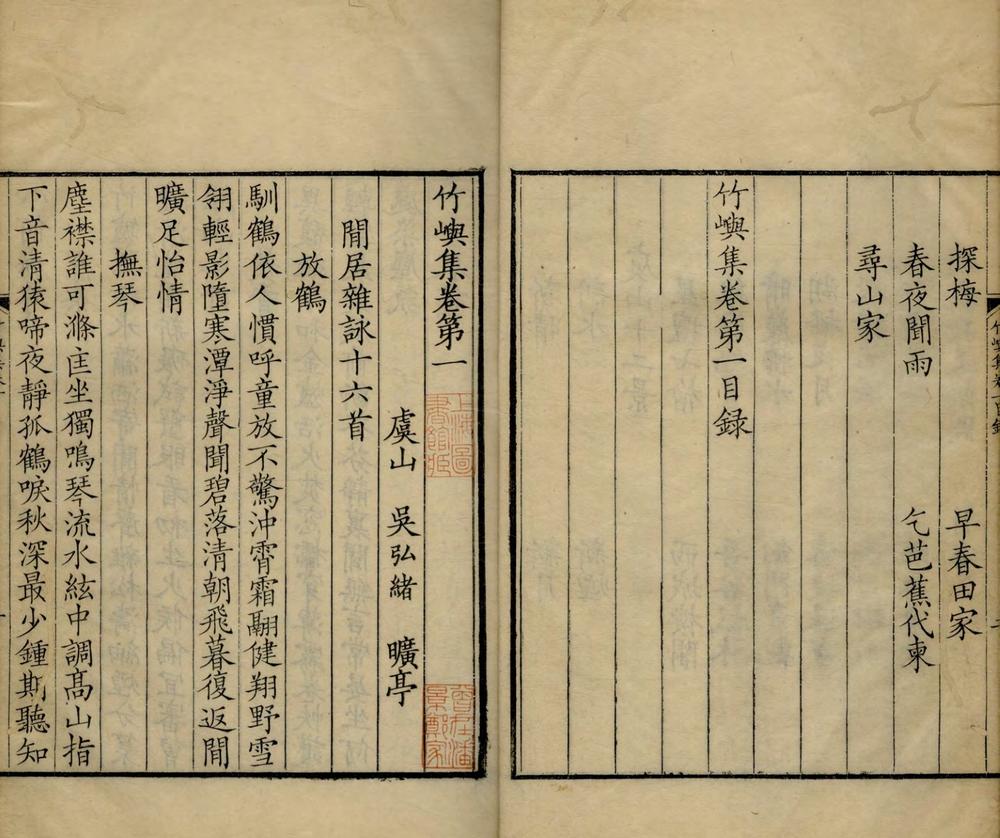 探梅 早春田家
春夜聞雨 乞芭蕉代柬
尋山家
竹嶼集卷第一目録
竹嶼集卷第一
虞山 吳弘緒 曠亭
閒居雜詠十六首
放鶴
馴鶴依人慣呼童放不驚沖霄霜翮健翔野雪
翎輕影墮寒潭淨聲聞碧落清朝飛暮復返閒
曠足怡情
撫琴
塵襟誰可滌匡坐獨鳴琴流水絃中調高山指
下音清猿啼夜靜孤鶴唳秋深最少鍾期聽知